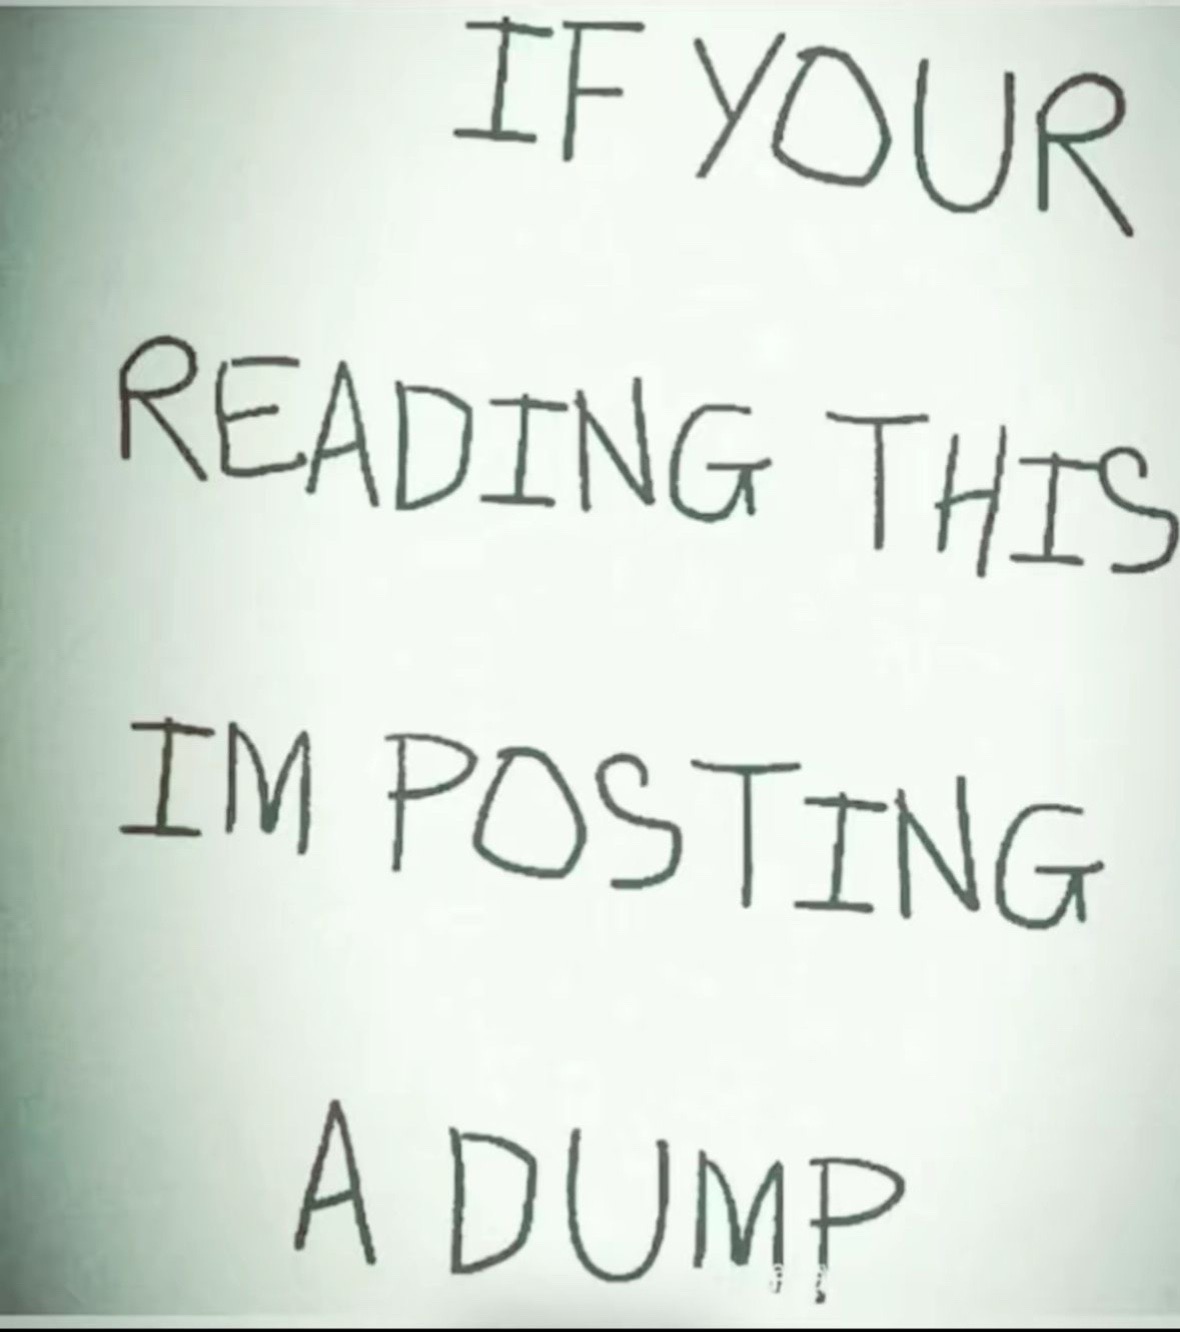 IF YOUR
READING THIS
IM POSTING
A DUMP